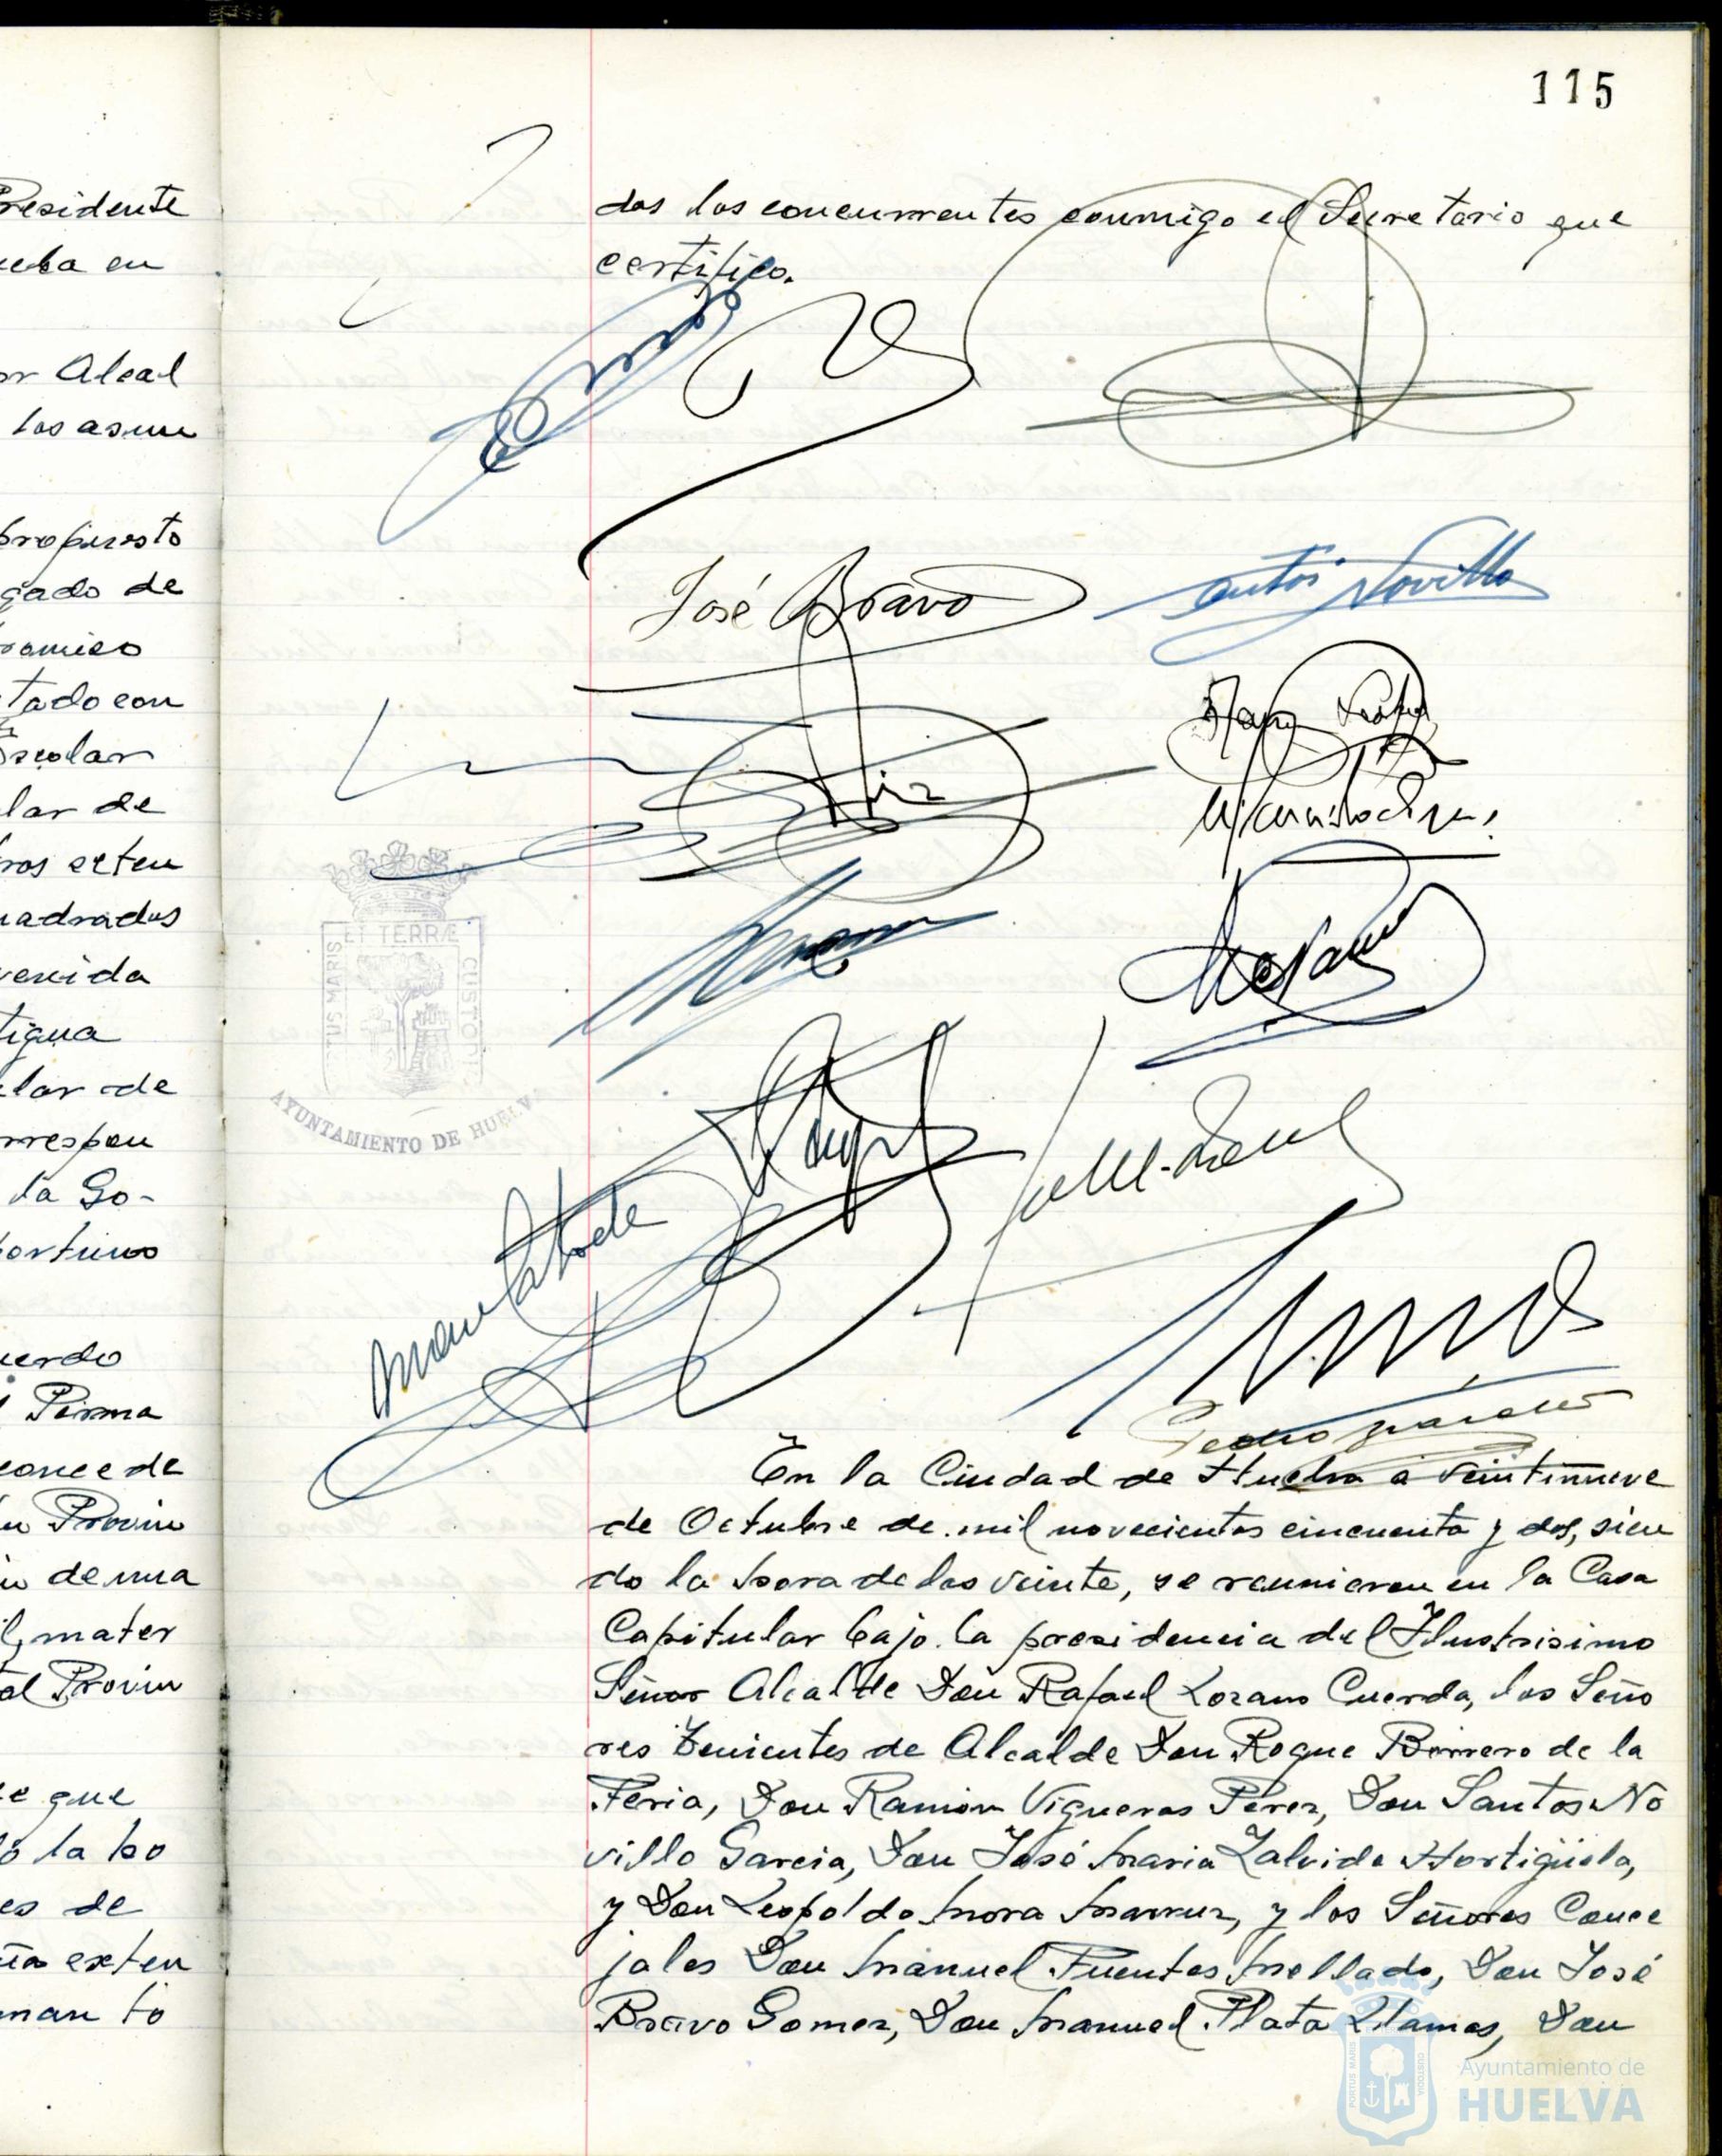 115
residente
en
Alcal
los asun
propuesto
gado de
tado con
scolar
lar de
ros exten
uadrados
venida
tigua
lar de
rrespon
la Go-
ortuno
uerdo
Perma
concede
Provin
de una
mater
al Provin
e que
la ho
es de
exten
man to
dos los concurrentes conmigo el Secretario que
certifico.
José Bravo
Santos Novillo
ET TERRÆ
CUSTODIA
AYUNTAMIENTO DE HUELVA
En la Ciudad de Huelva a veintinueve
de Octubre de mil novecientos cincuenta y dos, sien
do la hora de las veinte, se reunieron en la Casa
Capitular bajo la presidencia del Ilustrisimo
Señor Alcalde Don Rafael Lozano Cuerda, los Seño
res Tenientes de Alcalde Don Roque Borrero de la
Feria, Don Ramon Vigueras Pérez, Don Santos No
villo Garcia, Don José Maria Zalvide Hortigüela,
y Don Leopoldo Mora y los Señores Conce
jales Don Manuel Fuentes Mellado, Don José
Bravo Gomez, Don Manuel Plata Llamas, Don
PORTUS MARIS
CUSTODIA
Ayuntamiento de
HUELVA